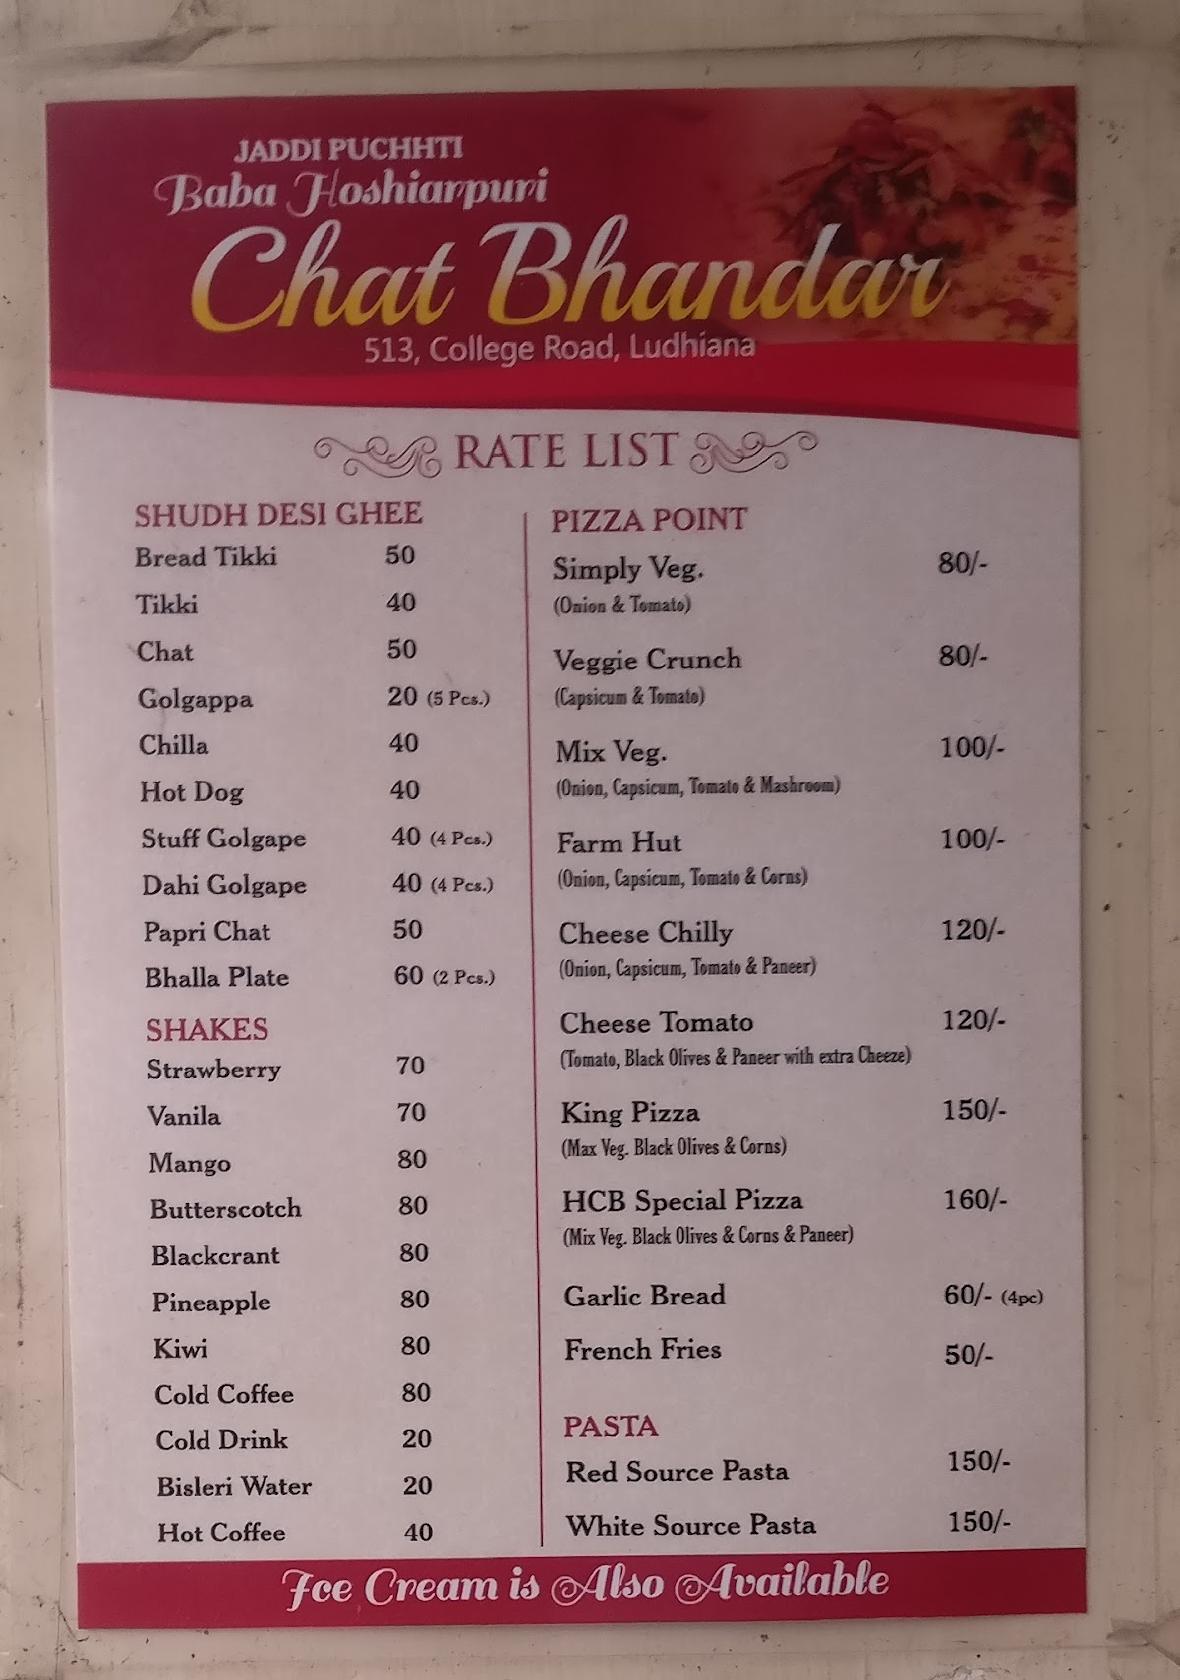 JADDI PUCHHTI
Baba Hoshiarpuri
Chat Bhandar
513, College Road, Ludhiana
RATE LIST
SHUDH DESI GHEE
Bread Tikki 50
Tikki 40
Chat 50
Golgappa 20 (5 Pcs.)
Chilla 40
Hot Dog 40
Stuff Golgape 40 (4 Pcs.)
Dahi Golgape 40 (4 Pcs.)
Papri Chat 50
Bhalla Plate 60 (2 Pcs.)
SHAKES
Strawberry 70
Vanila 70
Mango 80
Butterscotch 80
Blackcrant 80
Pineapple 80
Kiwi 80
Cold Coffee 80
Cold Drink 20
Bisleri Water 20
Hot Coffee 40
PIZZA POINT
Simply Veg. 80/-
(Onion & Tomato)
Veggie Crunch 80/-
(Capsicum & Tomato)
Mix Veg. 100/-
(Onion, Capsicum, Tomato & Mashroom)
Farm Hut 100/-
(Onion, Capsicum, Tomato & Corns)
Cheese Chilly 120/-
(Onion, Capsicum, Tomato & Paneer)
Cheese Tomato 120/-
(Tomato, Black Olives & Paneer with extra Cheeze)
King Pizza 150/-
(Max Veg. Black Olives & Corns)
HCB Special Pizza 160/-
(Mix Veg. Black Olives & Corns & Paneer)
Garlic Bread 60/- (4pc)
French Fries 50/-
PASTA
Red Source Pasta 150/-
White Source Pasta 150/-
Ice Cream is Also Available